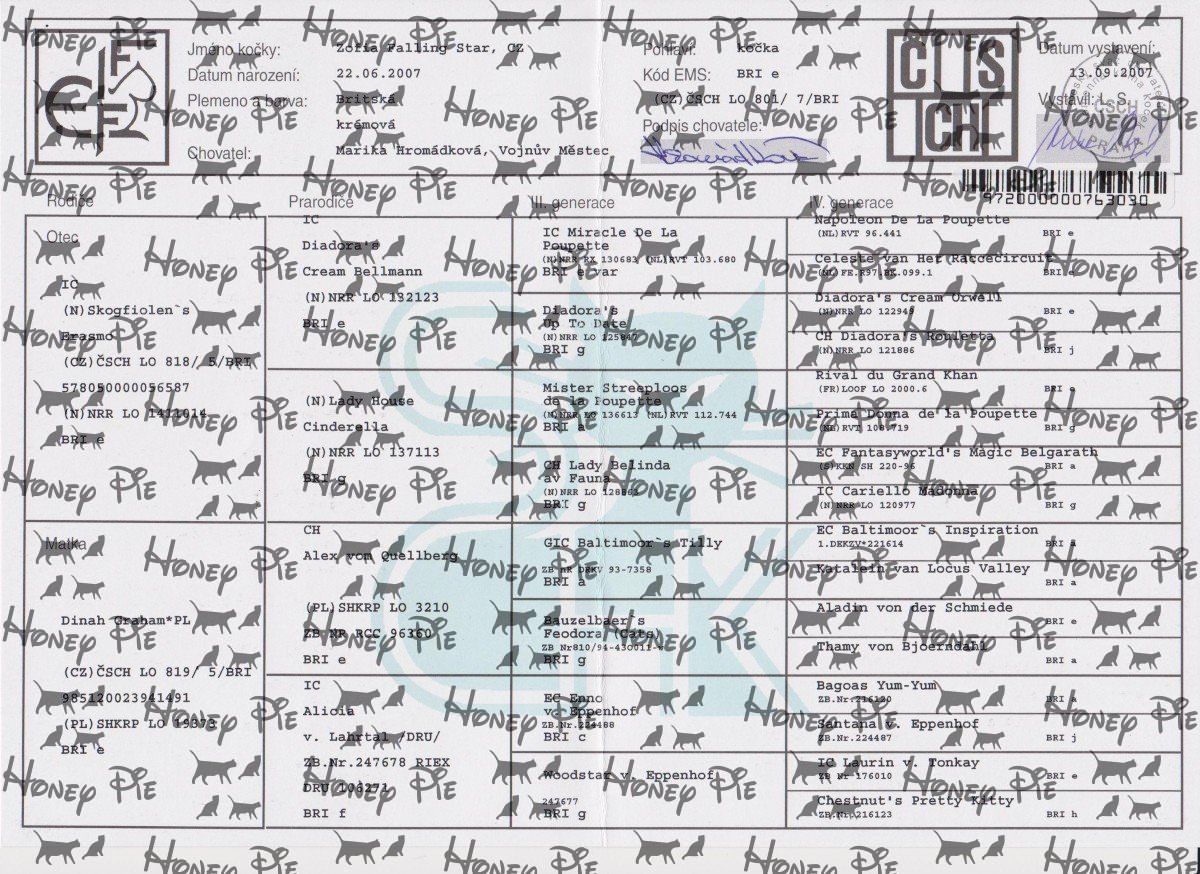 Jméno kočky: Zofia Falling Star, CZ
Datum narození: 22.06.2007
Plemeno a barva: Britská
krémová
Chovatel: Marika Hromádková, Vojnův Městec
Pohlaví: kočka
Kód EMS: BRI e
(CZ)ČSCH LO 801/ 7/BRI
Podpis chovatele:
ČS
CH
Datum vystavení:
13.09.2007
Vystavil: L. S.
ČSCH
PRAHA
972000000763030
Rodiče
Prarodiče
III. generace
IV. generace
Otec
IC
(N)Skogfiolen`s
Erasmo
(CZ)ČSCH LO 818/ 5/BRI
578050000056587
(N)NRR LO 1411014
BRI e
Matka
Dinah Graham*PL
(CZ)ČSCH LO 819/ 5/BRI
985120023941491
(PL)SHKRP LO 19373
BRI e
IC
Diadora's
Cream Bellmann
(N)NRR LO 132123
BRI e
(N)Lady House
Cinderella
(N)NRR LO 137113
BRI g
CH
Alex vom Quellberg
(PL)SHKRP LO 3210
ZB NR RCC 96360
BRI e
IC
Alicia
v. Lahrtal /DRU/
ZB.Nr.247678 RIEX
DRU 106271
BRI f
IC Miracle De La
Poupette
(N)NRR RX 130683 (NL)RVT 103.680
BRI e var
Diadora's
Up To Date
(N)NRR LO 125847
BRI g
Mister Streeploos
de la Poupette
(N)NRR LO 136613 (NL)RVT 112.744
BRI a
CH Lady Belinda
av Fauna
(N)NRR LO 128862
BRI g
GIC Baltimoor`s Tilly
ZB nR DRKV 93-7358
BRI a
Bauzelbaer`s
Feodora (Cats)
ZB Nr810/94-430011-w
BRI g
EC Enno
v. Eppenhof
ZB.Nr.224488
BRI c
Woodstar v. Eppenhof
247677
BRI g
Napoleon De La Poupette
(NL)RVT 96.441 BRI e
Celeste van Het Raccecircuit
(NL)FE.R97.BK.099.1 BRI
Diadora's Cream Orwell
(N)NRR LO 122949 BRI e
CH Diadora's Rouletta
(N)NRR LO 121886 BRI j
Rival du Grand Khan
(FR)LOOF LO 2000.6 BRI e
Prima Donna de la Poupette
(NL)RVT 108.719 BRI g
EC Fantasyworld's Magic Belgarath
(S)KKN SH 220-96 BRI a
IC Cariello Madonna
(N)NRR LO 120977 BRI g
EC Baltimoor`s Inspiration
1.DEKZV*221614 BRI a
Katalein van Locus Valley
BRI a
Aladin von der Schmiede
BRI e
Thamy von Bjoerndahl
BRI a
Bagoas Yum-Yum
ZB.Nr.216120 BRI a
Santana v. Eppenhof
ZB.Nr.224487 BRI j
IC Laurin v. Tonkay
ZB Nr 176010 BRI e
Chestnut's Pretty Kitty
ZB.Nr.216123 BRI h
Honey Pie